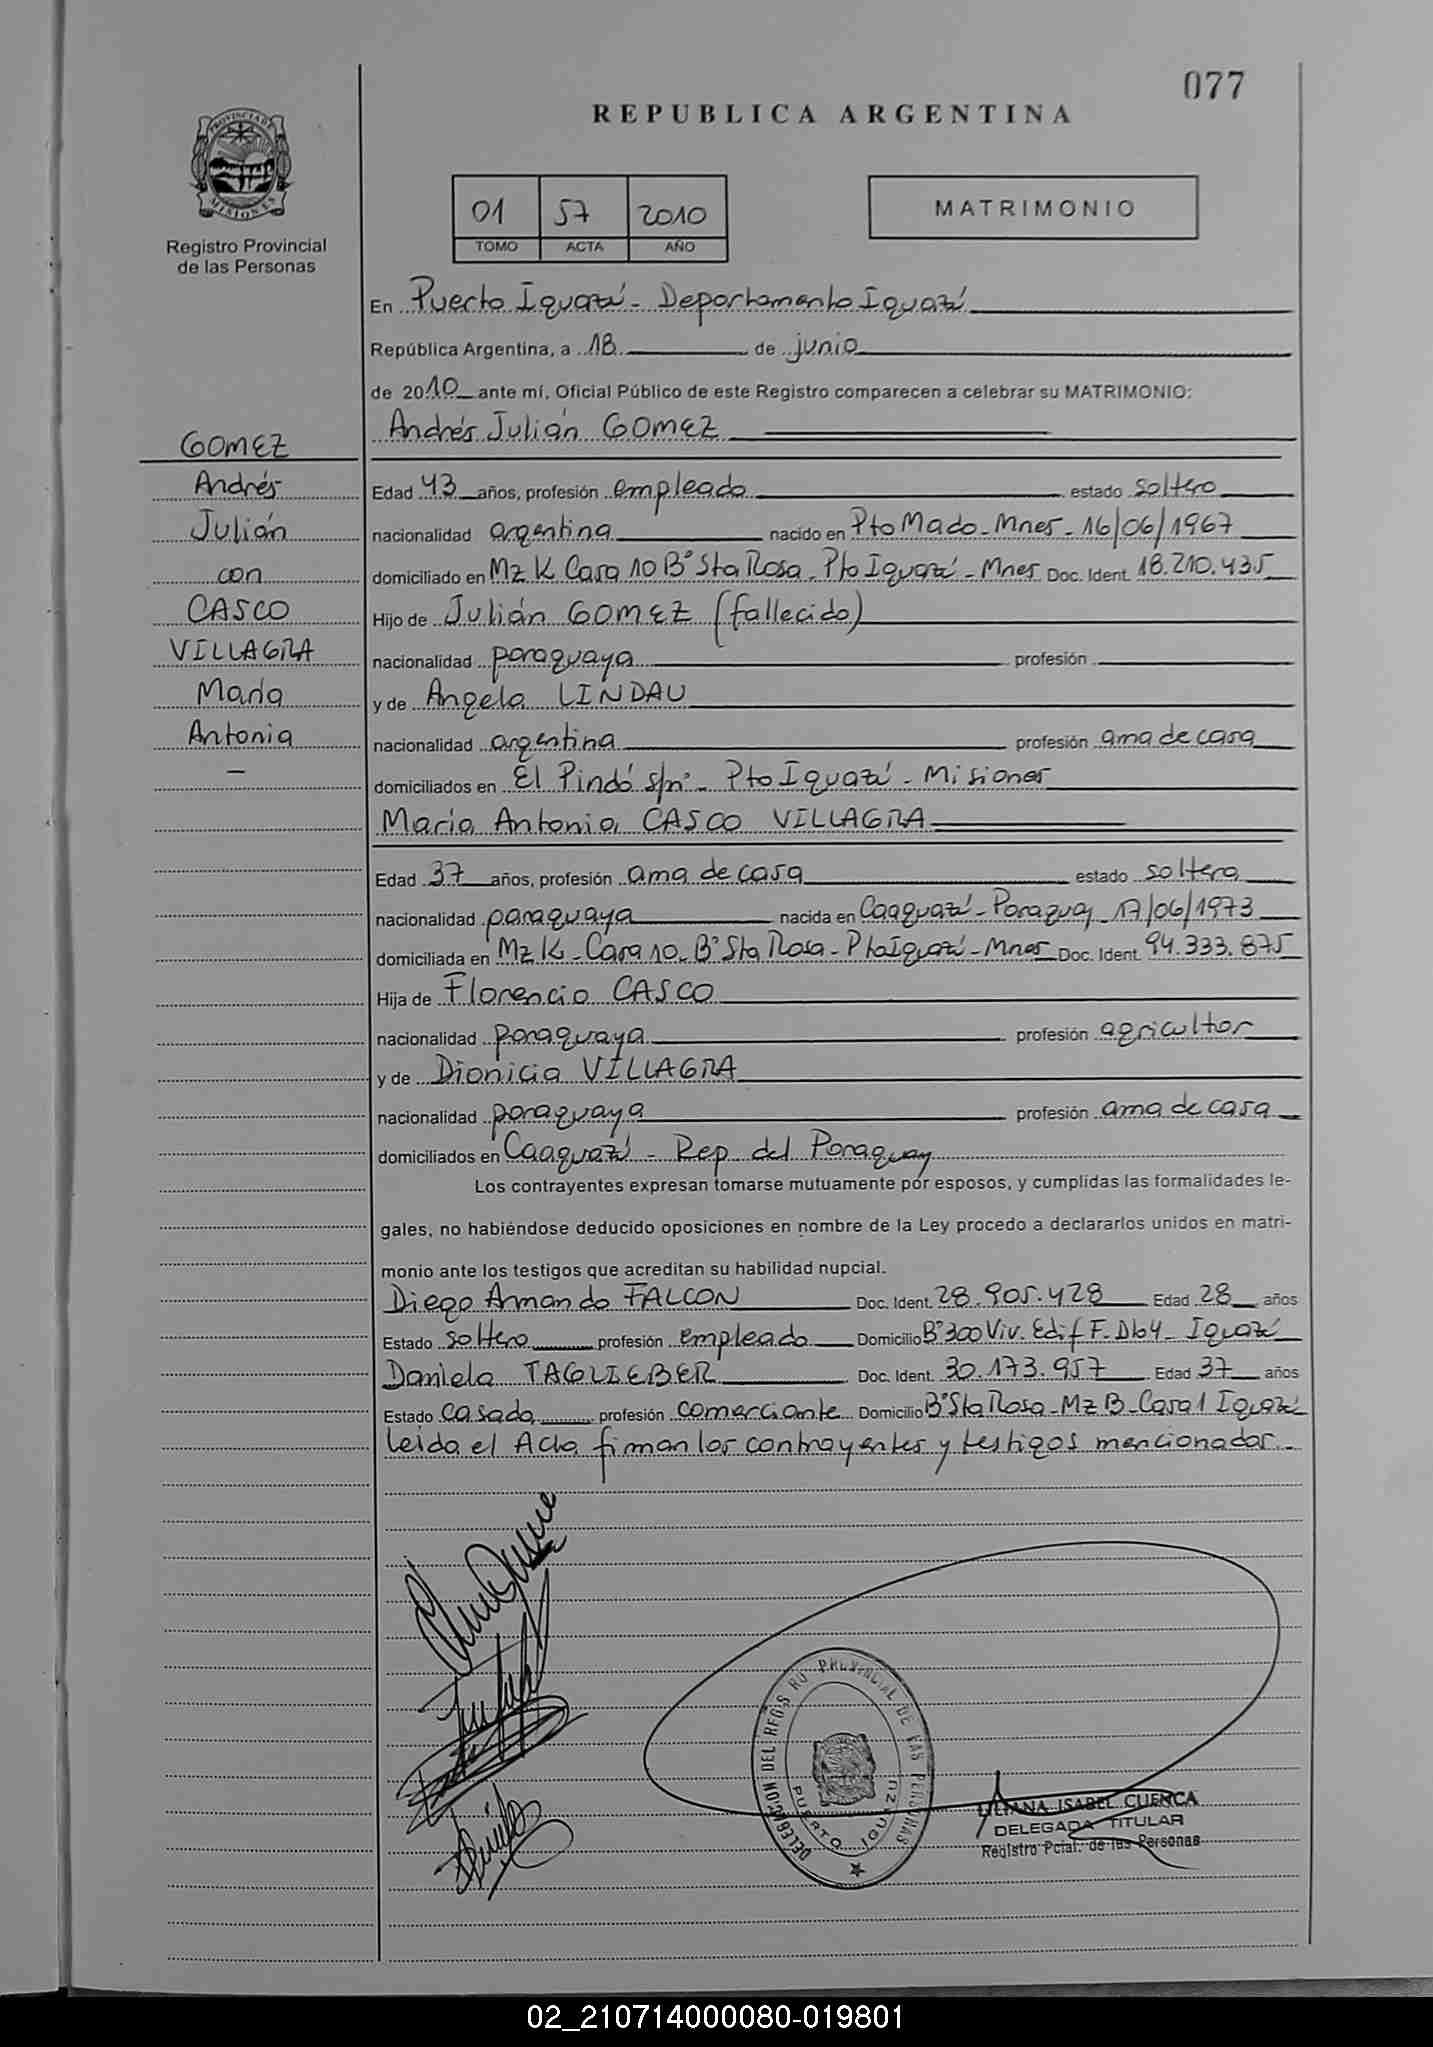 077
REPUBLICA ARGENTINA
PROVINCIA DE MISIONES
Registro Provincial
de las Personas
01 57 2010
TOMO ACTA AÑO
MATRIMONIO
En Puerto Iguazú - Departamento Iguazú
República Argentina, a 18 de junio
de 2010 ante mí, Oficial Público de este Registro comparecen a celebrar su MATRIMONIO:
Andrés Julián GOMEZ
GOMEZ
Andrés
Julián
con
CASCO
VILLAGRA
María
Antonia
Edad 43 años, profesión empleado estado soltero
nacionalidad argentina nacido en Pto Mado - Mnes - 16/06/1967
domiciliado en Mz K Casa 10 B° Sta Rosa - Pto Iguazú - Mnes Doc. Ident. 18.210.435
Hijo de Julián GOMEZ (fallecido)
nacionalidad paraguaya profesión
y de Angela LINDAU
nacionalidad argentina profesión ama de casa
domiciliados en El Pindó s/n° - Pto Iguazú - Misiones
María Antonia CASCO VILLAGRA
Edad 37 años, profesión ama de casa estado soltera
nacionalidad paraguaya nacida en Caaguazú - Paraguay - 17/06/1973
domiciliada en Mz K - Casa 10 - B° Sta Rosa - Pto Iguazú - Mnes Doc. Ident. 94.333.875
Hija de Florencio CASCO
nacionalidad paraguaya profesión agricultor
y de Dionicia VILLAGRA
nacionalidad paraguaya profesión ama de casa
domiciliados en Caaguazú - Rep del Paraguay
Los contrayentes expresan tomarse mutuamente por esposos, y cumplidas las formalidades le-
gales, no habiéndose deducido oposiciones en nombre de la Ley procedo a declararlos unidos en matri-
monio ante los testigos que acreditan su habilidad nupcial.
Diego Armando FALCON Doc. Ident. 28.905.428 Edad 28 años
Estado soltero profesión empleado Domicilio B° 300 Viv. Edif F - Dto 4 - Iguazú
Daniela TAGLIEBER Doc. Ident. 30.173.957 Edad 37 años
Estado casada profesión comerciante Domicilio B° Sta Rosa - Mz B - Casa 1 Iguazú
leída el Acta firman los contrayentes y testigos mencionados.-
DELEGACION DEL REGISTRO PROVINCIAL DE LAS PERSONAS
PUERTO IGUAZU
LILIANA ISABEL CUENCA
DELEGADA TITULAR
Registro Pcial. de las Personas
02_210714000080-019801